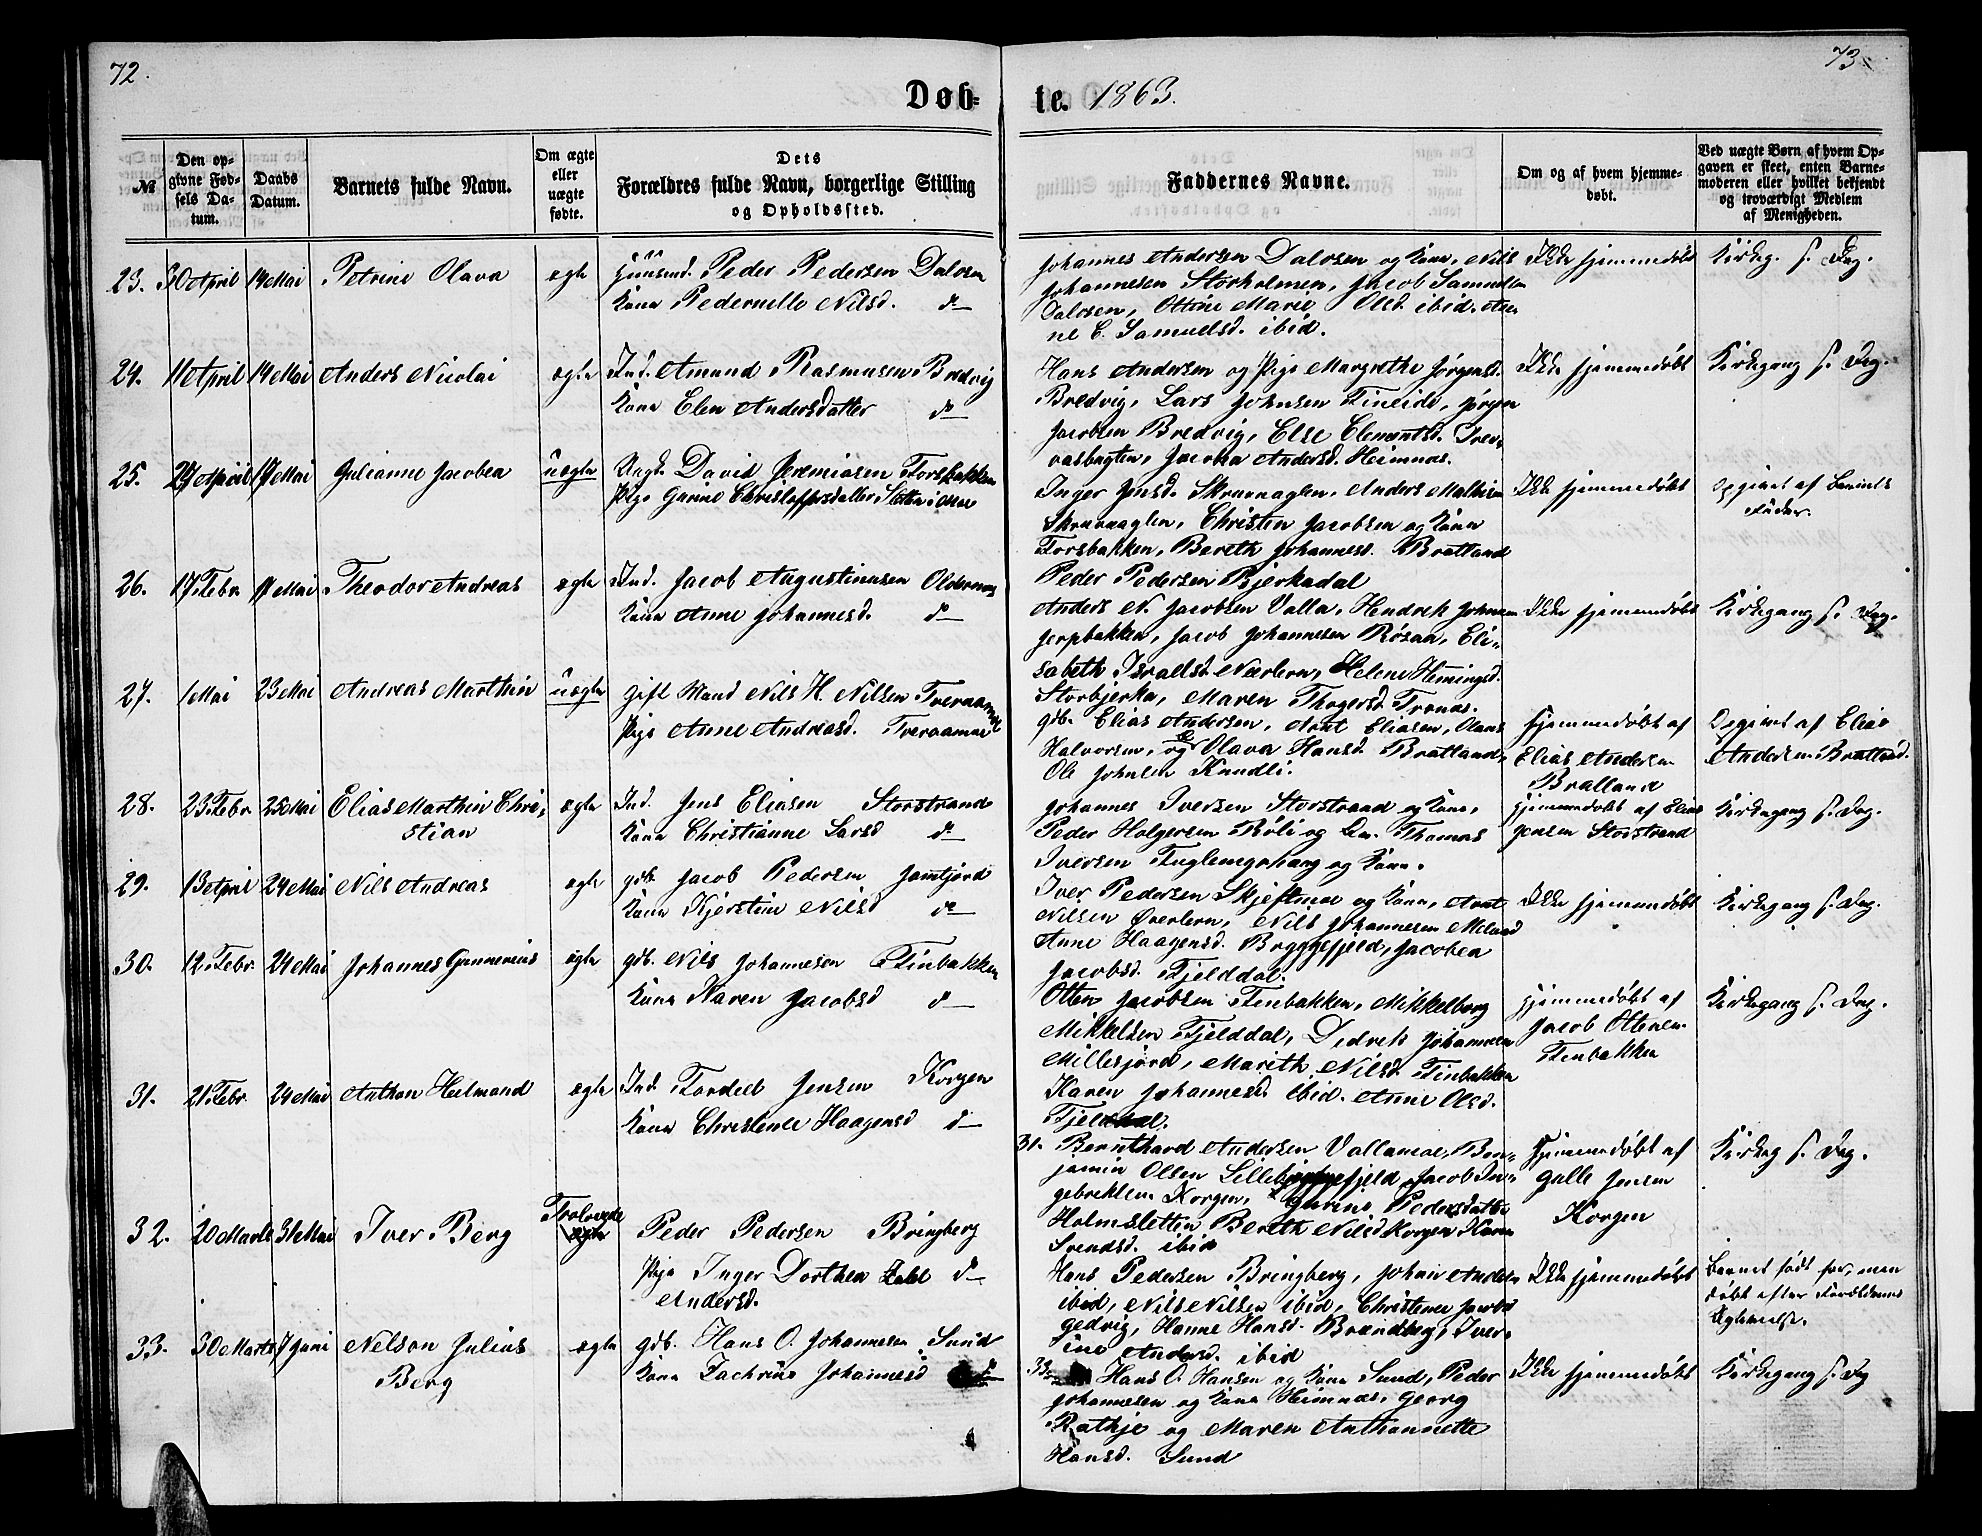 72.
73.
Døb-
te. 1863.
№
Den op-
givne Fød-
sels Da-
tum.
Daabs
Datum.
Barnets fulde Navn.
Om ægte
eller
uægte
fødte.
Dets
Forældres fulde Navn, borgerlige Stilling
og Opholdssted.
Faddernes Navne.
Om og af hvem hjemme-
døbt.
Ved uægte Børn af hvem Op-
gaven er skeet, enten Barne-
moderen eller hvilket bekjendt
og troværdigt Medlem
af Menigheden.
23. 30 April 14 Mai Petrine Olava ægte Huusmd. Peder Pedersen Dalosen
Kone Pedernelle Nilsd. do
Johannes Andersen Dalosen og Kone, Nils
Johannesen Storholmen, Jacob Samuelsen
Dalosen, Ottine Marie Olsd. ibid. An-
ne C. Samuelsd. ibid.
Ikke hjemmedøbt
Kirkeg. s. Dag.
24. 11 April 14 Mai Anders Nicolai ægte Ind. Amund Rasmusen Bredvig
Kone Elen Andersdatter do
Hans Andersen og Pige Margrethe Jørgensd.
Bredvig, Lars Johnsen Fineide, Jørgen
Jacobsen Bredvig, Else Clementsd.
Jacobea Andersd. Heimnæs.
Ikke hjemmedøbt
Kirkegang s. Dag.
25. 27 April 17 Mai Julianne Jacobea uægte Ungk. David Jeremiasen Forsbakken
Pige Gurine Christophersdatter,
Inger Jensd. Skravnaglen, Anders Mathisen
Skravnaglen, Christen Jacobsen og Kone
Forsbakken, Bereth Johannesd. Bratland
Peder Pedersen Bjerkadal
Ikke hjemmedøbt
Opgivet af Barnets
Fader.
26. 17 Febr. 17 Mai Theodor Andreas ægte Ind. Jacob Augustinusen Oldernæs
Kone Anne Johannesd. do
Anders N. Jacobsen Valla, Hendrik Johnsen
Jerpbakken, Jacob Johannesen Røsaa, Eli-
sabeth Israelsd. Nærlern, Helene Hemingsd.
Storbjerka, Maren Thogersd. Fronæs.
Ikke hjemmedøbt
Kirkegang s. Dag.
27. 1 Mai 23 Mai Andreas Marthin uægte Gift Mand Nils H. Nilsen Tveraamoe
Pige Anne Andreasd. Tveraamoe
gdb. Elias Andersen, Arnt Eliasen, Olaus
Halvorsen, og Olava Hansd. Bratland,
Ole Johnsen Kundli.
Hjemmedøbt af
Elias Andersen
Bratland
Opgivet af Elias
Andersen Bratland.
28. 23 Febr. 25 Mai Elias Marthin Chri-
stian
ægte Ind. Jens Eliasen Storstrand
Kone Christianne Larsd do
Johannes Iversen Storstrand og Kone,
Peder Holgersen Røli og Kone Thomas
Iversen Fuglemohaug og Kone.
Hjemmedøbt af Elias
Jensen Storstrand
Kirkegang s. Dag.
29. 13 April 24 Mai Nils Andreas ægte gdb. Jacob Pedersen Jamtjord
Kone Kjerstine Nilsd do
Iver Pedersen Skjeftmoe og Kone, Arnt
Nilsen Øverlern, Nils Johannesen Meland
Anne Haagensd. Bryggefjeld, Jacobea
Jacobsd. Fjelddal.
Ikke hjemmedøbt
Kirkegang s. Dag.
30. 12. Febr. 24 Mai Johannes Gunnerius ægte gdb. Nils Johannesen Finbakken
Kone Karen Jacobsd do
Otten Jacobsen Finbakken, Mikkelborg
Mikkelsen Fjelddal, Didrik Johannesen
Millesjord, Marith Nilsd. Finbakken
Karen Johannesd. ibid. Anne Olsd.
Fjelddal.
Hjemmedøbt af
Jacob Ottesen
Finbakken
Kirkegang s. Dag.
31. 21 Febr. 24 Mai Anthon Heilmand ægte Ind. Tarald Jensen Korgen
Kone Christense Haagensd do
31. Bernthard Andersen Vallamoe, Ben-
jamin Olsen Lillebryggefjeld, Jacob In-
gebrektsen Korgen, Gurine Pedersdatter
Holmsletten Bereth Nilsd Korgen Karen
Svendsd. ibid
Hjemmedøbt af
Galle Jensen
Korgen
Kirkeg s. Dag.
32. 20 Marts 31 Mai Iver Berg Trolovede
ægte
Peder Pedersen Bringberg
Pige Inger Dorthea Zahl do
Andersd.
Hans Pedersen Bringberg, Johan Andersen
ibid, Nils Nilsen ibid, Christense Jacobsd
Hanne Hansd. Brændberg, Iver-
ine Andersd. ibid
Ikke hjemmedøbt
Barnet født før, men
døbt efter Forældrenes
Ægtevielse.
33. 30 Marts 7 Juni Nelson Julius
Berg
ægte gdb. Hans O. Johannesen Sund
Kone Zachrine Johannesd do
33. Hans O. Hansen og Kone Sund, Peder
Johannesen og Kone Heimnæs, Georg
Rathje og Maren Anthonnette
Hansd. Sund
Ikke hjemmedøbt
Kirkegang s. Dag